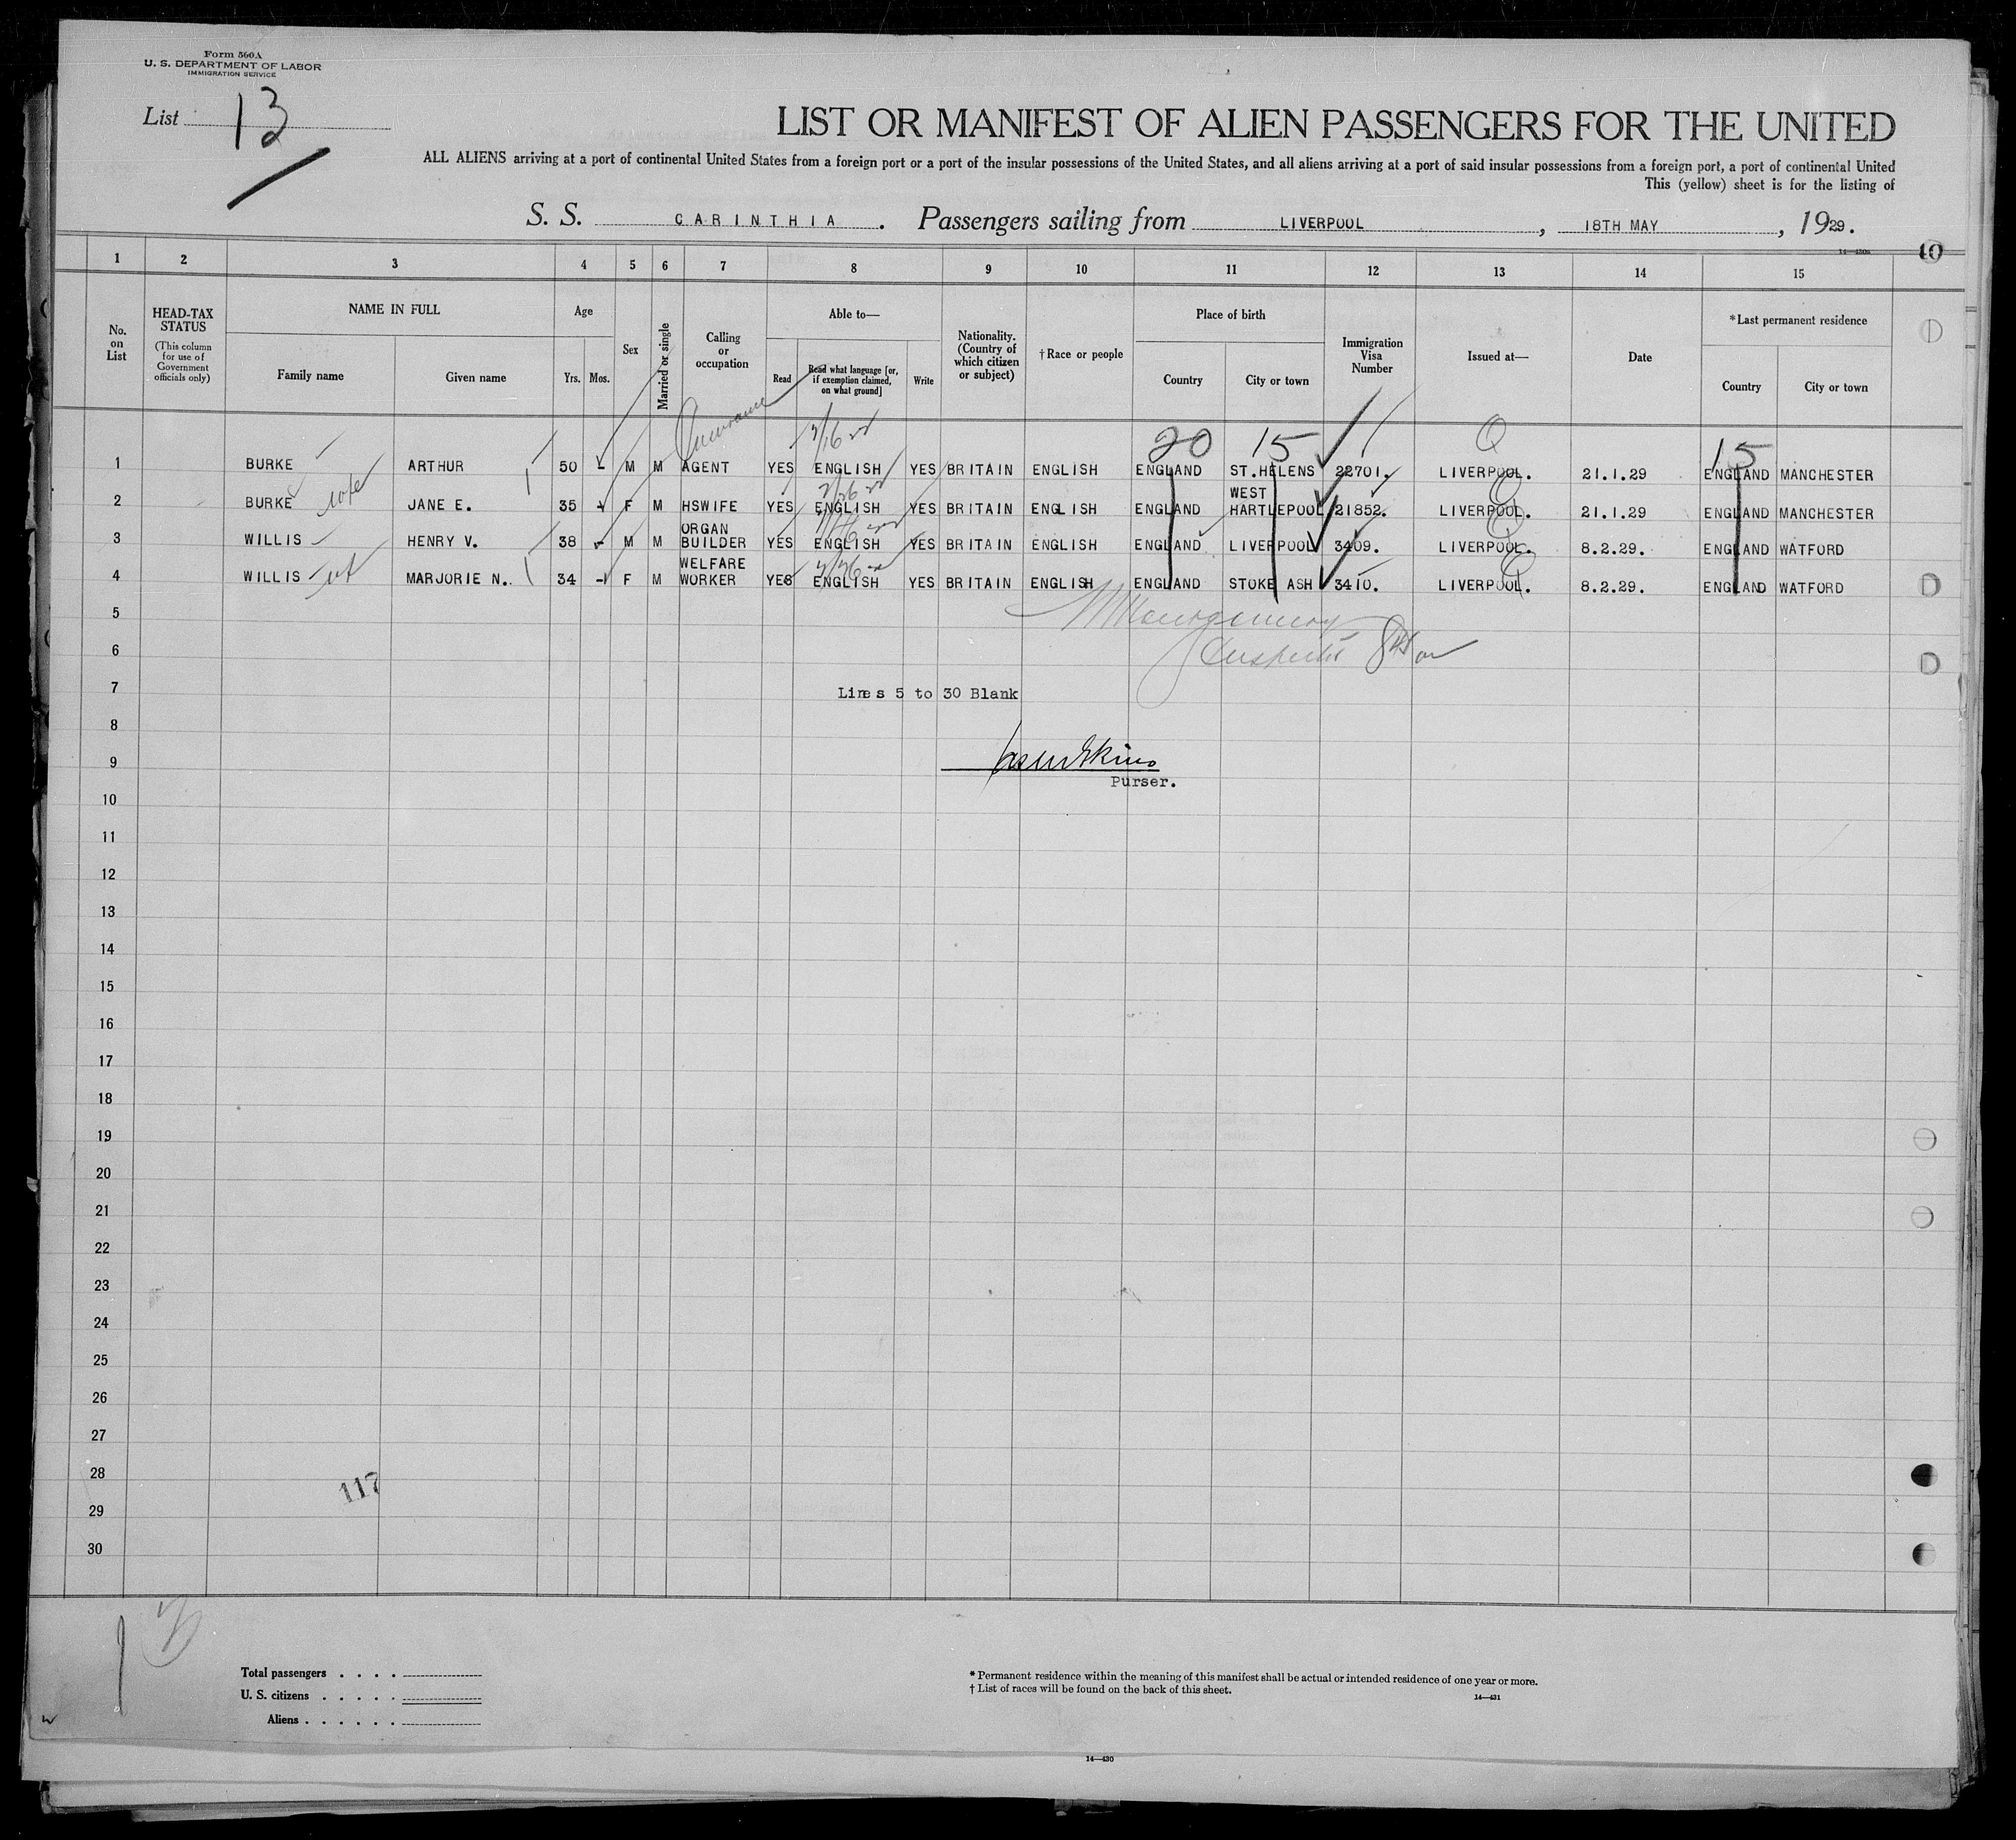 Form 560A
U. S. DEPARTMENT OF LABOR
IMMIGRATION SERVICE
List 13
LIST OR MANIFEST OF ALIEN PASSENGERS FOR THE UNITED
ALL ALIENS arriving at a port of continental United States from a foreign port or a port of the insular possessions of the United States, and all aliens arriving at a port of said insular possessions from a foreign port, a port of continental United
This (yellow) sheet is for the listing of
S. S. CARINTHIA. Passengers sailing from LIVERPOOL, 18TH MAY, 1929.
14—430a
10
1 2 3 4 5 6 7 8 9 10 11 12 13 14 15
No. on List
HEAD-TAX STATUS
(This column for use of Government officials only)
NAME IN FULL
Family name
Given name
Age
Yrs.
Mos.
Sex
Married or single
Calling or occupation
Able to—
Read
Read what language [or, if exemption claimed, on what ground]
Write
Nationality. (Country of which citizen or subject)
†Race or people
Place of birth
Country
City or town
Immigration Visa Number
Issued at—
Date
*Last permanent residence
Country
City or town
20 15 Q 15
1 BURKE ARTHUR 50 - M M AGENT YES ENGLISH YES BRITAIN ENGLISH ENGLAND ST.HELENS 22701. LIVERPOOL. 21.1.29 ENGLAND MANCHESTER
2 BURKE wife JANE E. 35 - F M HSWIFE YES ENGLISH YES BRITAIN ENGLISH ENGLAND WEST HARTLEPOOL 21852. LIVERPOOL. 21.1.29 ENGLAND MANCHESTER
3 WILLIS HENRY V. 38 - M M ORGAN BUILDER YES ENGLISH YES BRITAIN ENGLISH ENGLAND LIVERPOOL 3409. LIVERPOOL. 8.2.29. ENGLAND WATFORD
4 WILLIS MARJORIE N. 34 - F M WELFARE WORKER YES ENGLISH YES BRITAIN ENGLISH ENGLAND STOKE ASH 3410. LIVERPOOL. 8.2.29. ENGLAND WATFORD
5
6
7
Lines 5 to 30 Blank
8
9
Purser.
10
11
12
13
14
15
16
17
18
19
20
21
22
23
24
25
26
27
28
117
29
30
Total passengers . . . .
U. S. citizens . . . . .
Aliens . . . . . .
* Permanent residence within the meaning of this manifest shall be actual or intended residence of one year or more.
† List of races will be found on the back of this sheet.
14—431
14—430